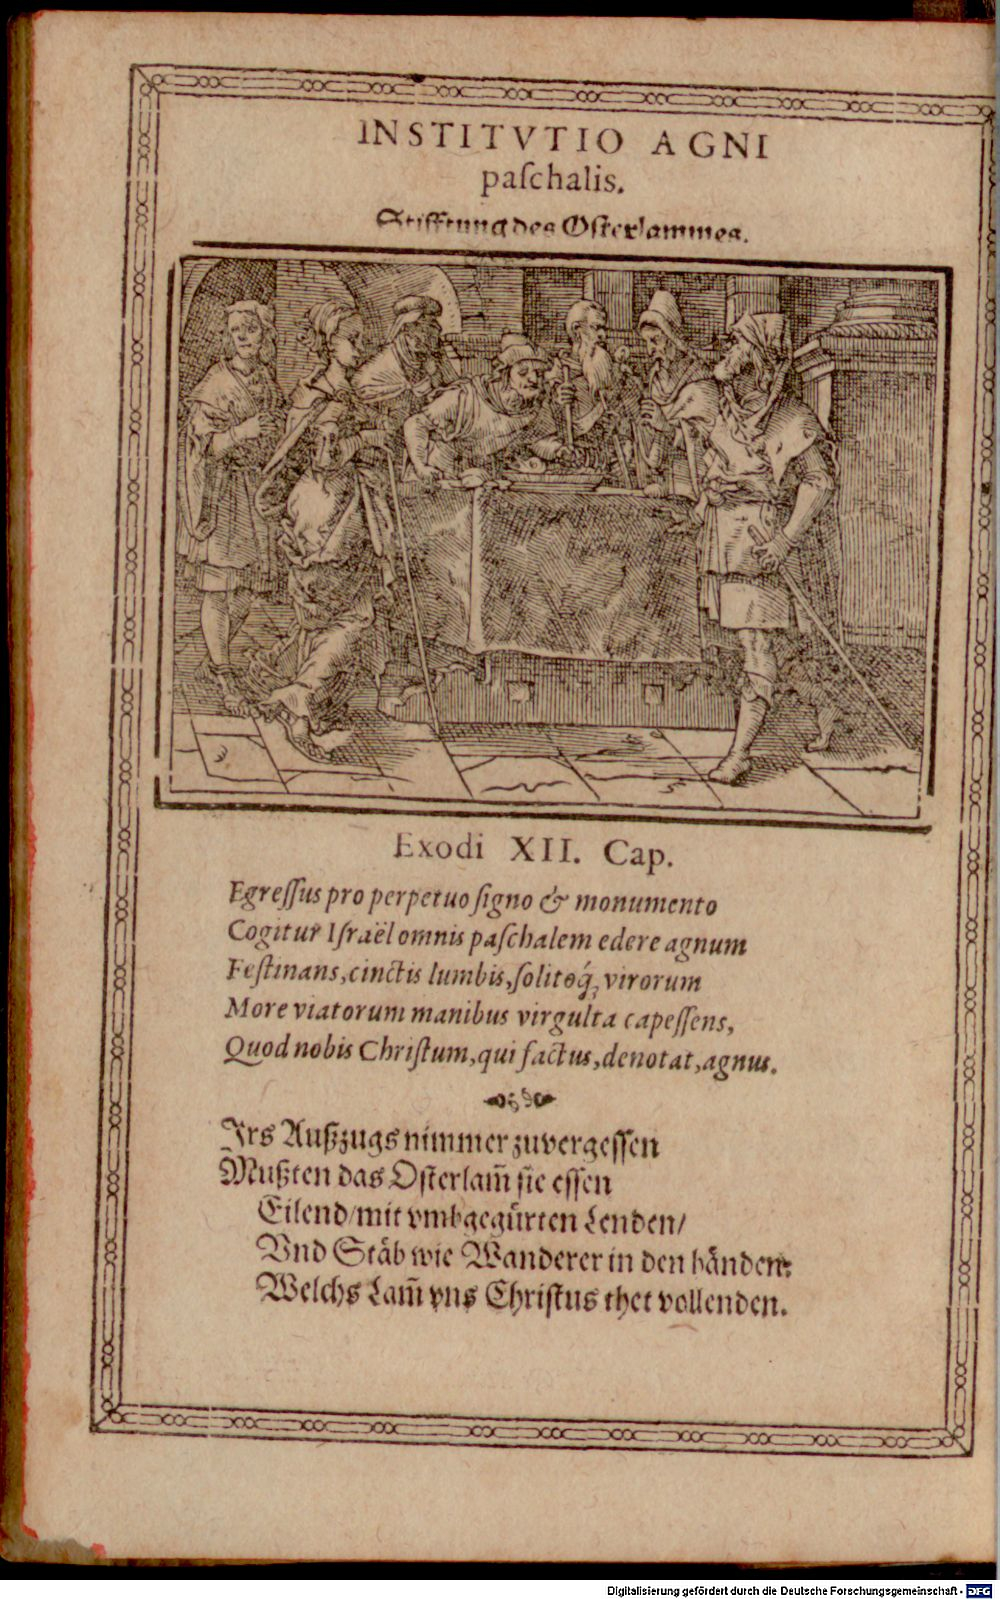 INSTITVTIO AGNI
paſchalis.
Stifftung des Oſterlammes.
Exodi XII. Cap.
Egreſſus pro perpetuo ſigno & monumento
Cogitur Iſraël omnis paſchalem edere agnum
Feſtinans, cinctis lumbis, ſolitoq́; virorum
More viatorum manibus virgulta capeſſens,
Quod nobis Chriſtum, qui factus, denotat, agnus.
Irs Außzugs nimmer zuvergeſſen
Mußten das Oſterlam̃ ſie eſſen
Eilend/ mit vmbgegürten Lenden/
Vnd Stäb wie Wanderer in den händen:
Welchs Lam̃ vns Chriſtus thet vollenden.
Digitalisierung gefördert durch die Deutsche Forschungsgemeinschaft - DFG